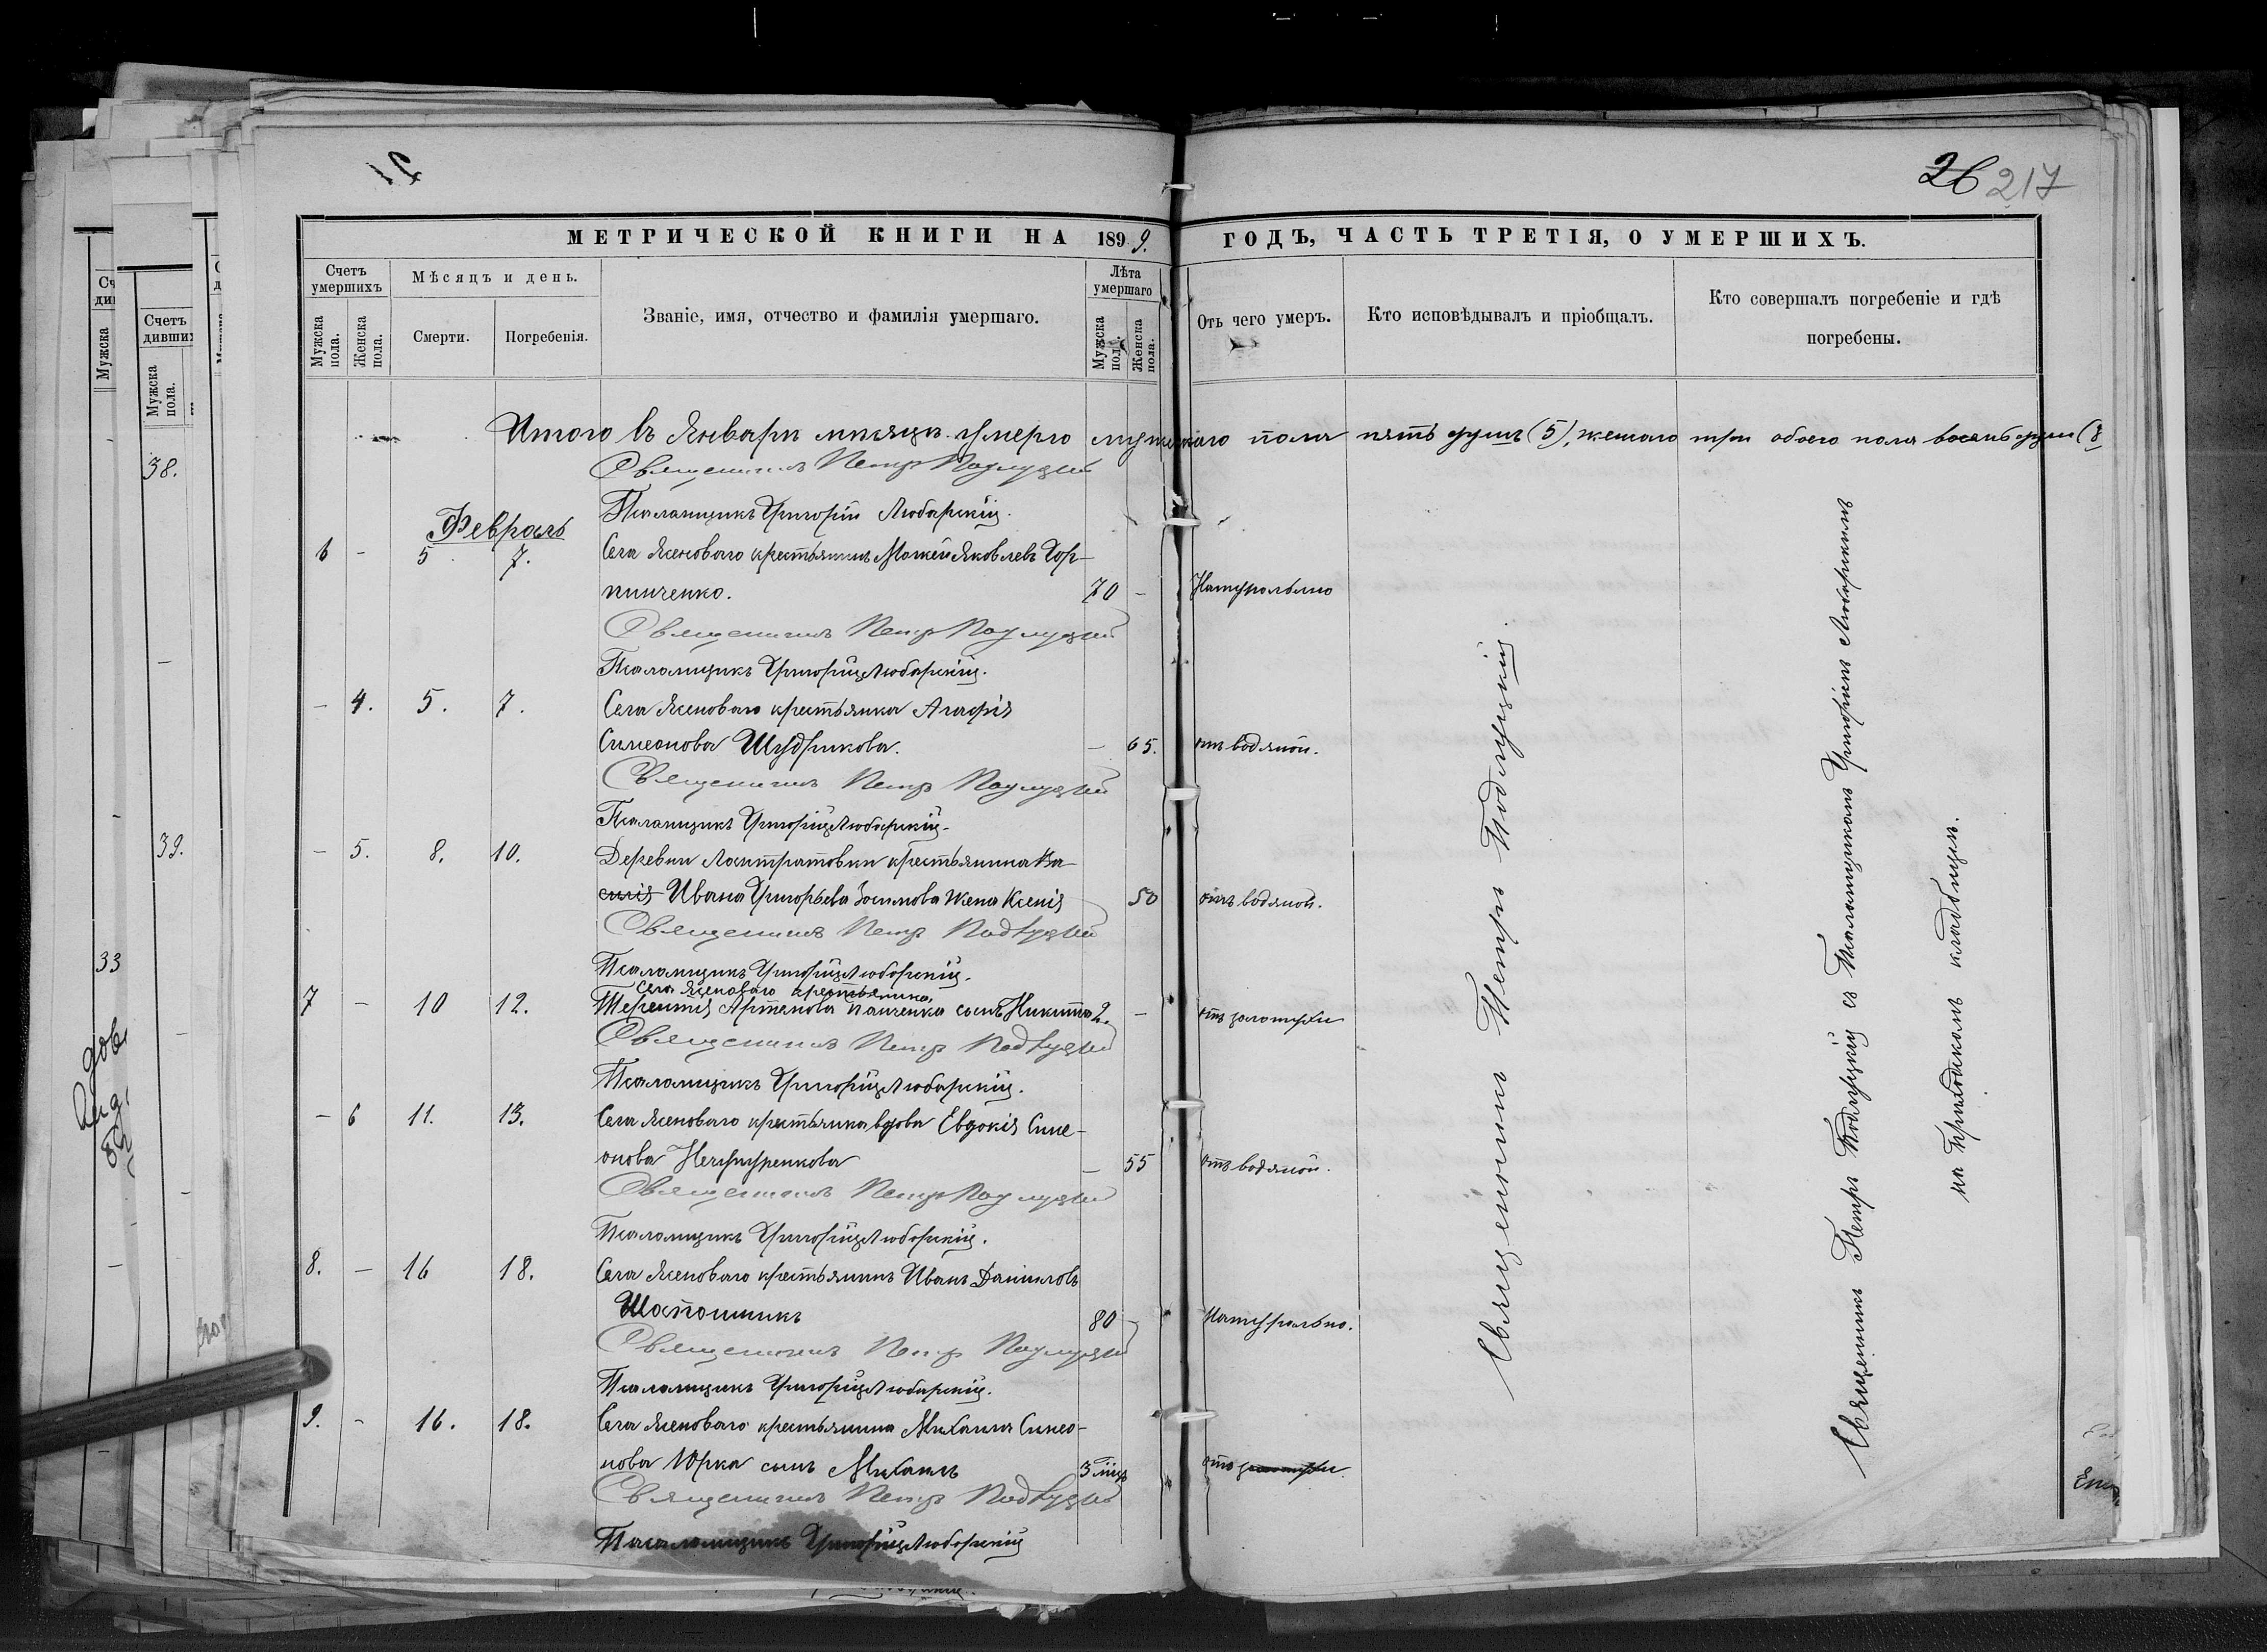 26 217
МЕТРИЧЕСКОЙ КНИГИ НА 1899. ГОДЪ, ЧАСТЬ ТРЕТІЯ, О УМЕРШИХЪ.
Счетъ умершихъ
Мѣсяцъ и день.
Званіе, имя, отчество и фамилія умершаго.
Лѣта умершаго
Отъ чего умеръ.
Кто исповѣдывалъ и пріобщалъ.
Кто совершалъ погребеніе и гдѣ
погребены.
Мужска пола.
Женска пола.
Смерти.
Погребенія.
Мужска пола.
Женска пола.
Итого въ Январѣ мѣсяцѣ умерло мужескаго пола пять душъ (5), женскаго три обоего пола восемь душъ (8
Священникъ Петръ Подлуцкій
Псаломщикъ Григорій Любарскій.
Февраль
6 - 5 7. Села Ясеноваго крестьянинъ Мокей Яковлевъ Гор-
пинченко. 70 - Натурально
Священникъ Петръ Подлуцкій
Псаломщикъ Григорій Любарскій.
- 4. 5. 7. Села Ясеноваго крестьянка Агафія
Симеонова Шудрикова. - 65. отъ водяной.
Священникъ Петръ Подлуцкій
Псаломщикъ Григорій Любарскій.
- 5. 8. 10. Деревни крестьянина Ва-
силія Ивана Григорьева жена Ксенія - 50 отъ водяной.
Священникъ Петръ Подлуцкій
Псаломщикъ Григорій Любарскій.
Села Ясеноваго крестьянина
7 - 10 12. Терентія Артемова Панченка сынъ Никита 2. - отъ золотухи
Священникъ Петръ Подлуцкій
Псаломщикъ Григорій Любарскій.
- 6 11. 13. Села Ясеноваго крестьянка вдова Евдокія Симе-
онова - 55 отъ водяной.
Священникъ Петръ Подлуцкій
Псаломщикъ Григорій Любарскій.
8. - 16 18. Села Ясеноваго крестьянинъ Иванъ Даниловъ
Шапошникъ 80 - Натурально.
Священникъ Петръ Подлуцкій
Псаломщикъ Григорій Любарскій.
9. - 16. 18. Села Ясеноваго крестьянина Михаила Симео-
нова Юрка сынъ Михаилъ 3 мѣс отъ золотухи.
Священникъ Петръ Подлуцкій
Псаломщикъ Григорій Любарскій
Священникъ Петръ Подлуцкій.
Священникъ Петръ Подлуцкій съ Псаломщикомъ Григоріемъ Любарскимъ
на Приходскомъ кладбищѣ.
Счетъ
Мужска пола.
38.
39.
Мужска
33